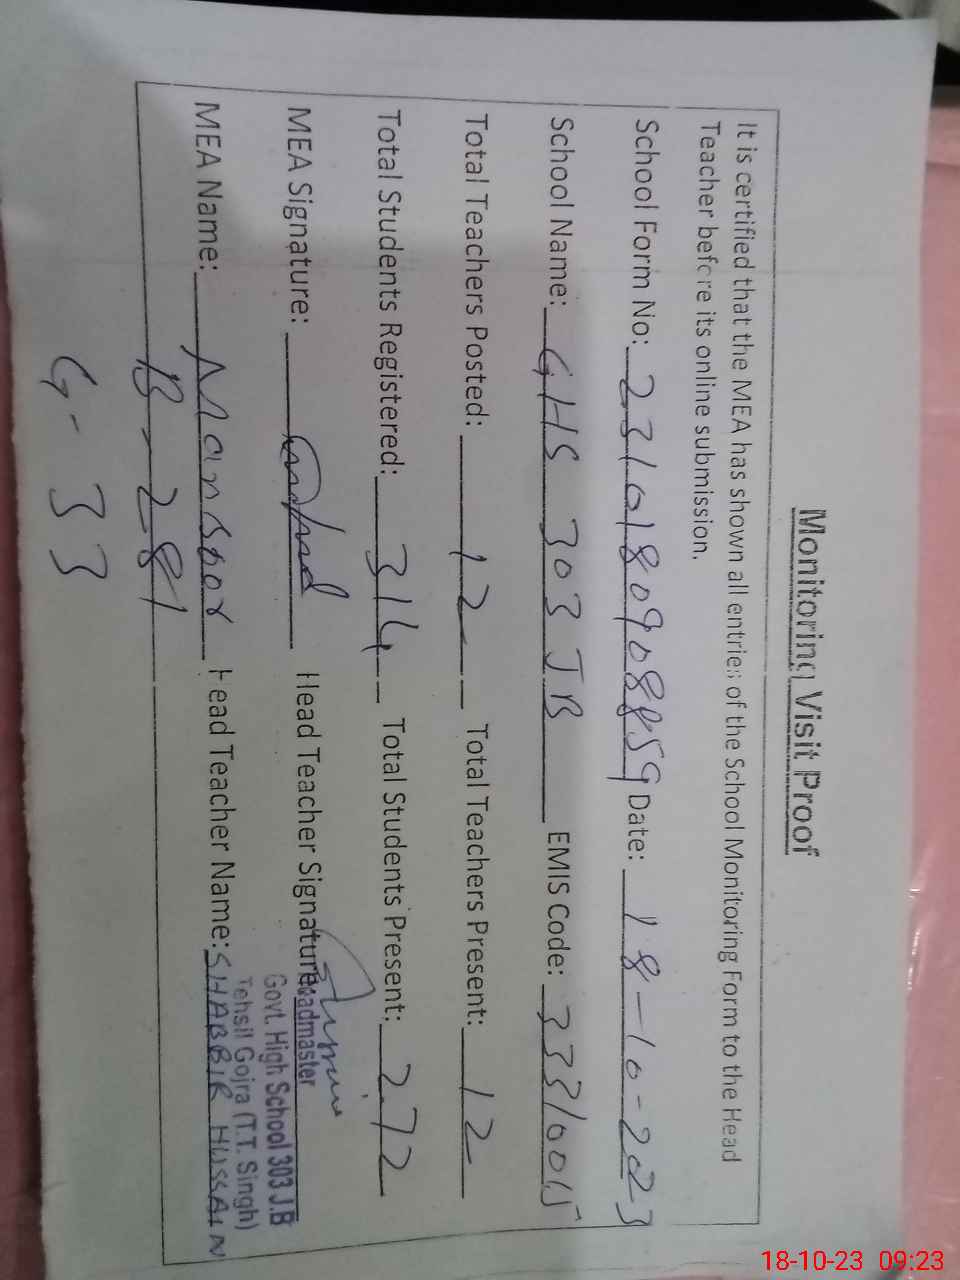 Monitoring Visit Proof
It is certified that the MEA has shown all entries of the School Monitoring Form to the Head
Teacher before its online submission.
School Form No: 23101809088859 Date: 18-10-2023
School Name: GHS 303 JB EMIS Code: 33310015
Total Teachers Posted: 12 Total Teachers Present: 12
Total Students Registered: 314 Total Students Present: 272
MEA Signature: Head Teacher Signature:
Headmaster
Govt. High School 303 J.B
Tehsil Gojra (T.T. Singh)
MEA Name: Mansoor Head Teacher Name: SHABBIR HUSSAIN
B-281
G-33
18-10-23 09:23